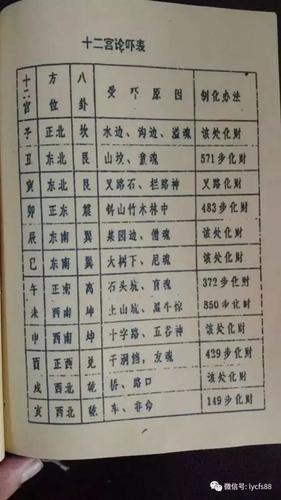 十二宫论吓表
十二宫 方位 八卦 受吓原因 制化办法
子 正北 坎 水边、沟边、溢魂 该处化财
丑 东北 艮 山坟、 571步化财
寅 东北 艮 叉路石、拦路神 叉路化财
卯 正东 震 斜山竹木林中 483步化财
辰 东南 巽 菜园边、僧魂 该处化财
巳 东南 巽 大树下、尼魂 该处化财
午 正南 离 石头坑、盲魂 372步化财
未 西南 坤 土山坑、 850步化财
申 西南 坤 十字路、五谷神 该处化财
酉 正西 兑 干涧、友魂 429步化财
戌 西北 乾 桥、路口 该处化财
亥 西北 乾 车、非命 149步化财
微信号: lycfs88